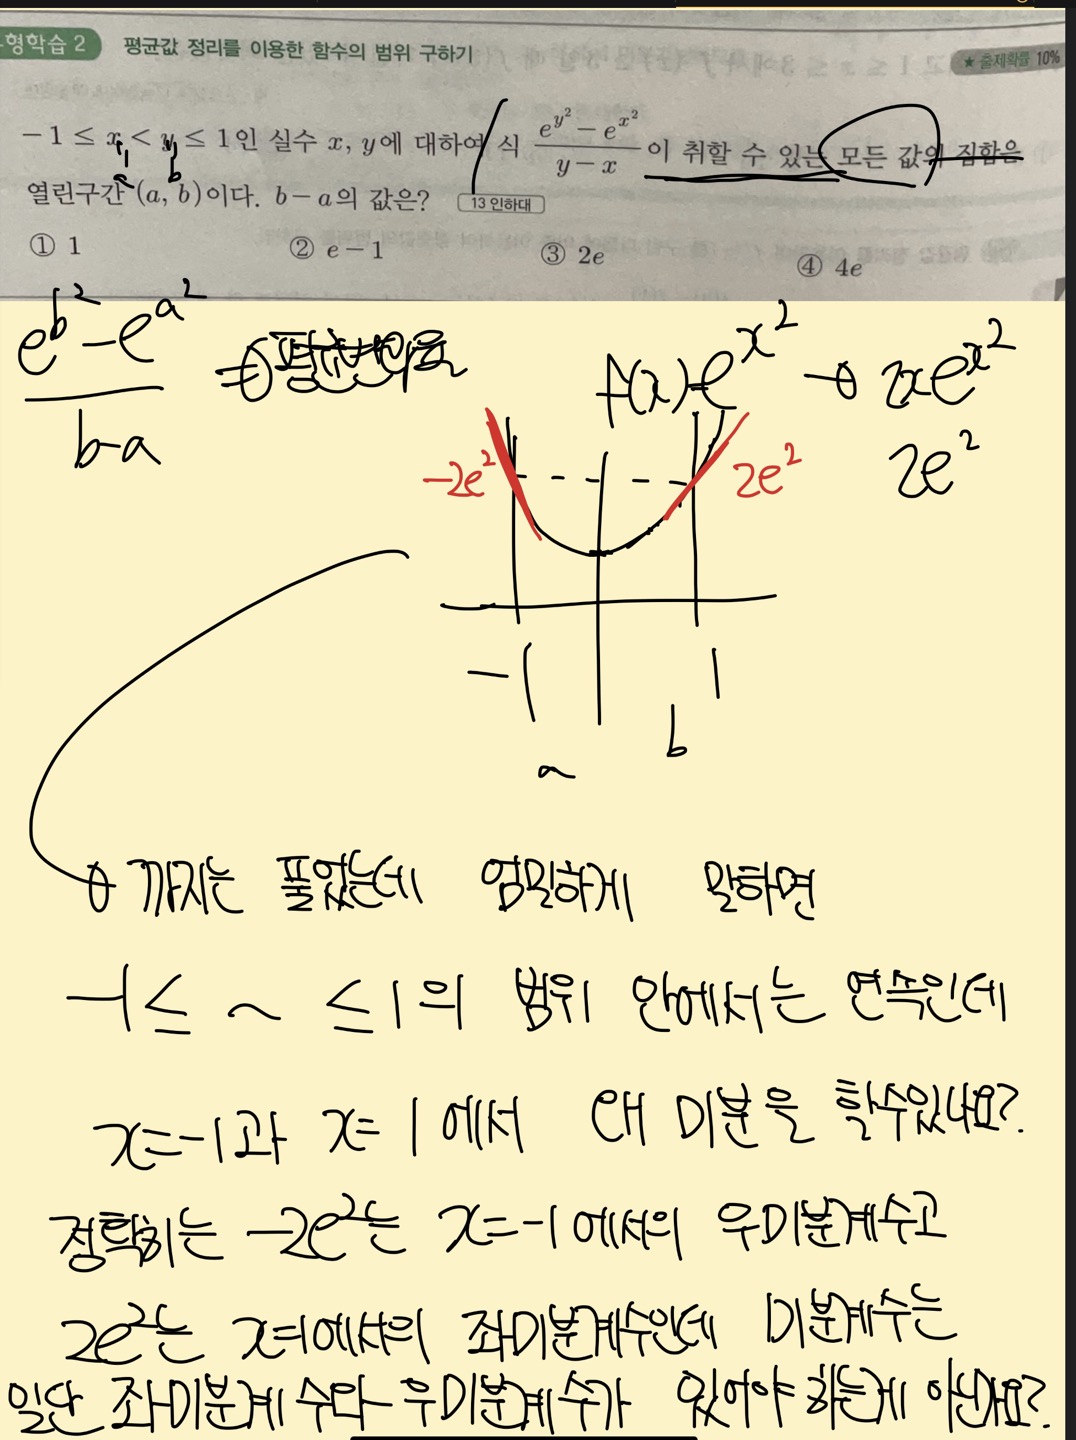 형학습 2 평균값 정리를 이용한 함수의 범위 구하기
★ 출제확률 10%
-1 ≤ x < y ≤ 1인 실수 x, y에 대하여 식 (e^{y^2} - e^{x^2})/(y - x) 이 취할 수 있는 모든 값의 집합은
a b
열린구간 (a, b)이다. b-a의 값은? 13 인하대
① 1 ② e-1 ③ 2e ④ 4e
(e^{b^2} - e^{a^2})/(b-a) ⇒ 평균변화율
f(x)=e^{x^2} → 2xe^{x^2}
2e^2
-2e^2 2e^2
-1 1
a b
→ 까지는 풀었는데 엄밀하게 말하면
-1 ≤ ~ ≤ 1의 범위 안에서는 연속인데
x=-1과 x=1에서 왜 미분을 할수있나요?
정확히는 -2e^2는 x=-1에서의 우미분계수고
2e^2는 x=1에서의 좌미분계수인데 미분계수는
일단 좌미분계수와 우미분계수가 있어야 하는게 아닌가요?